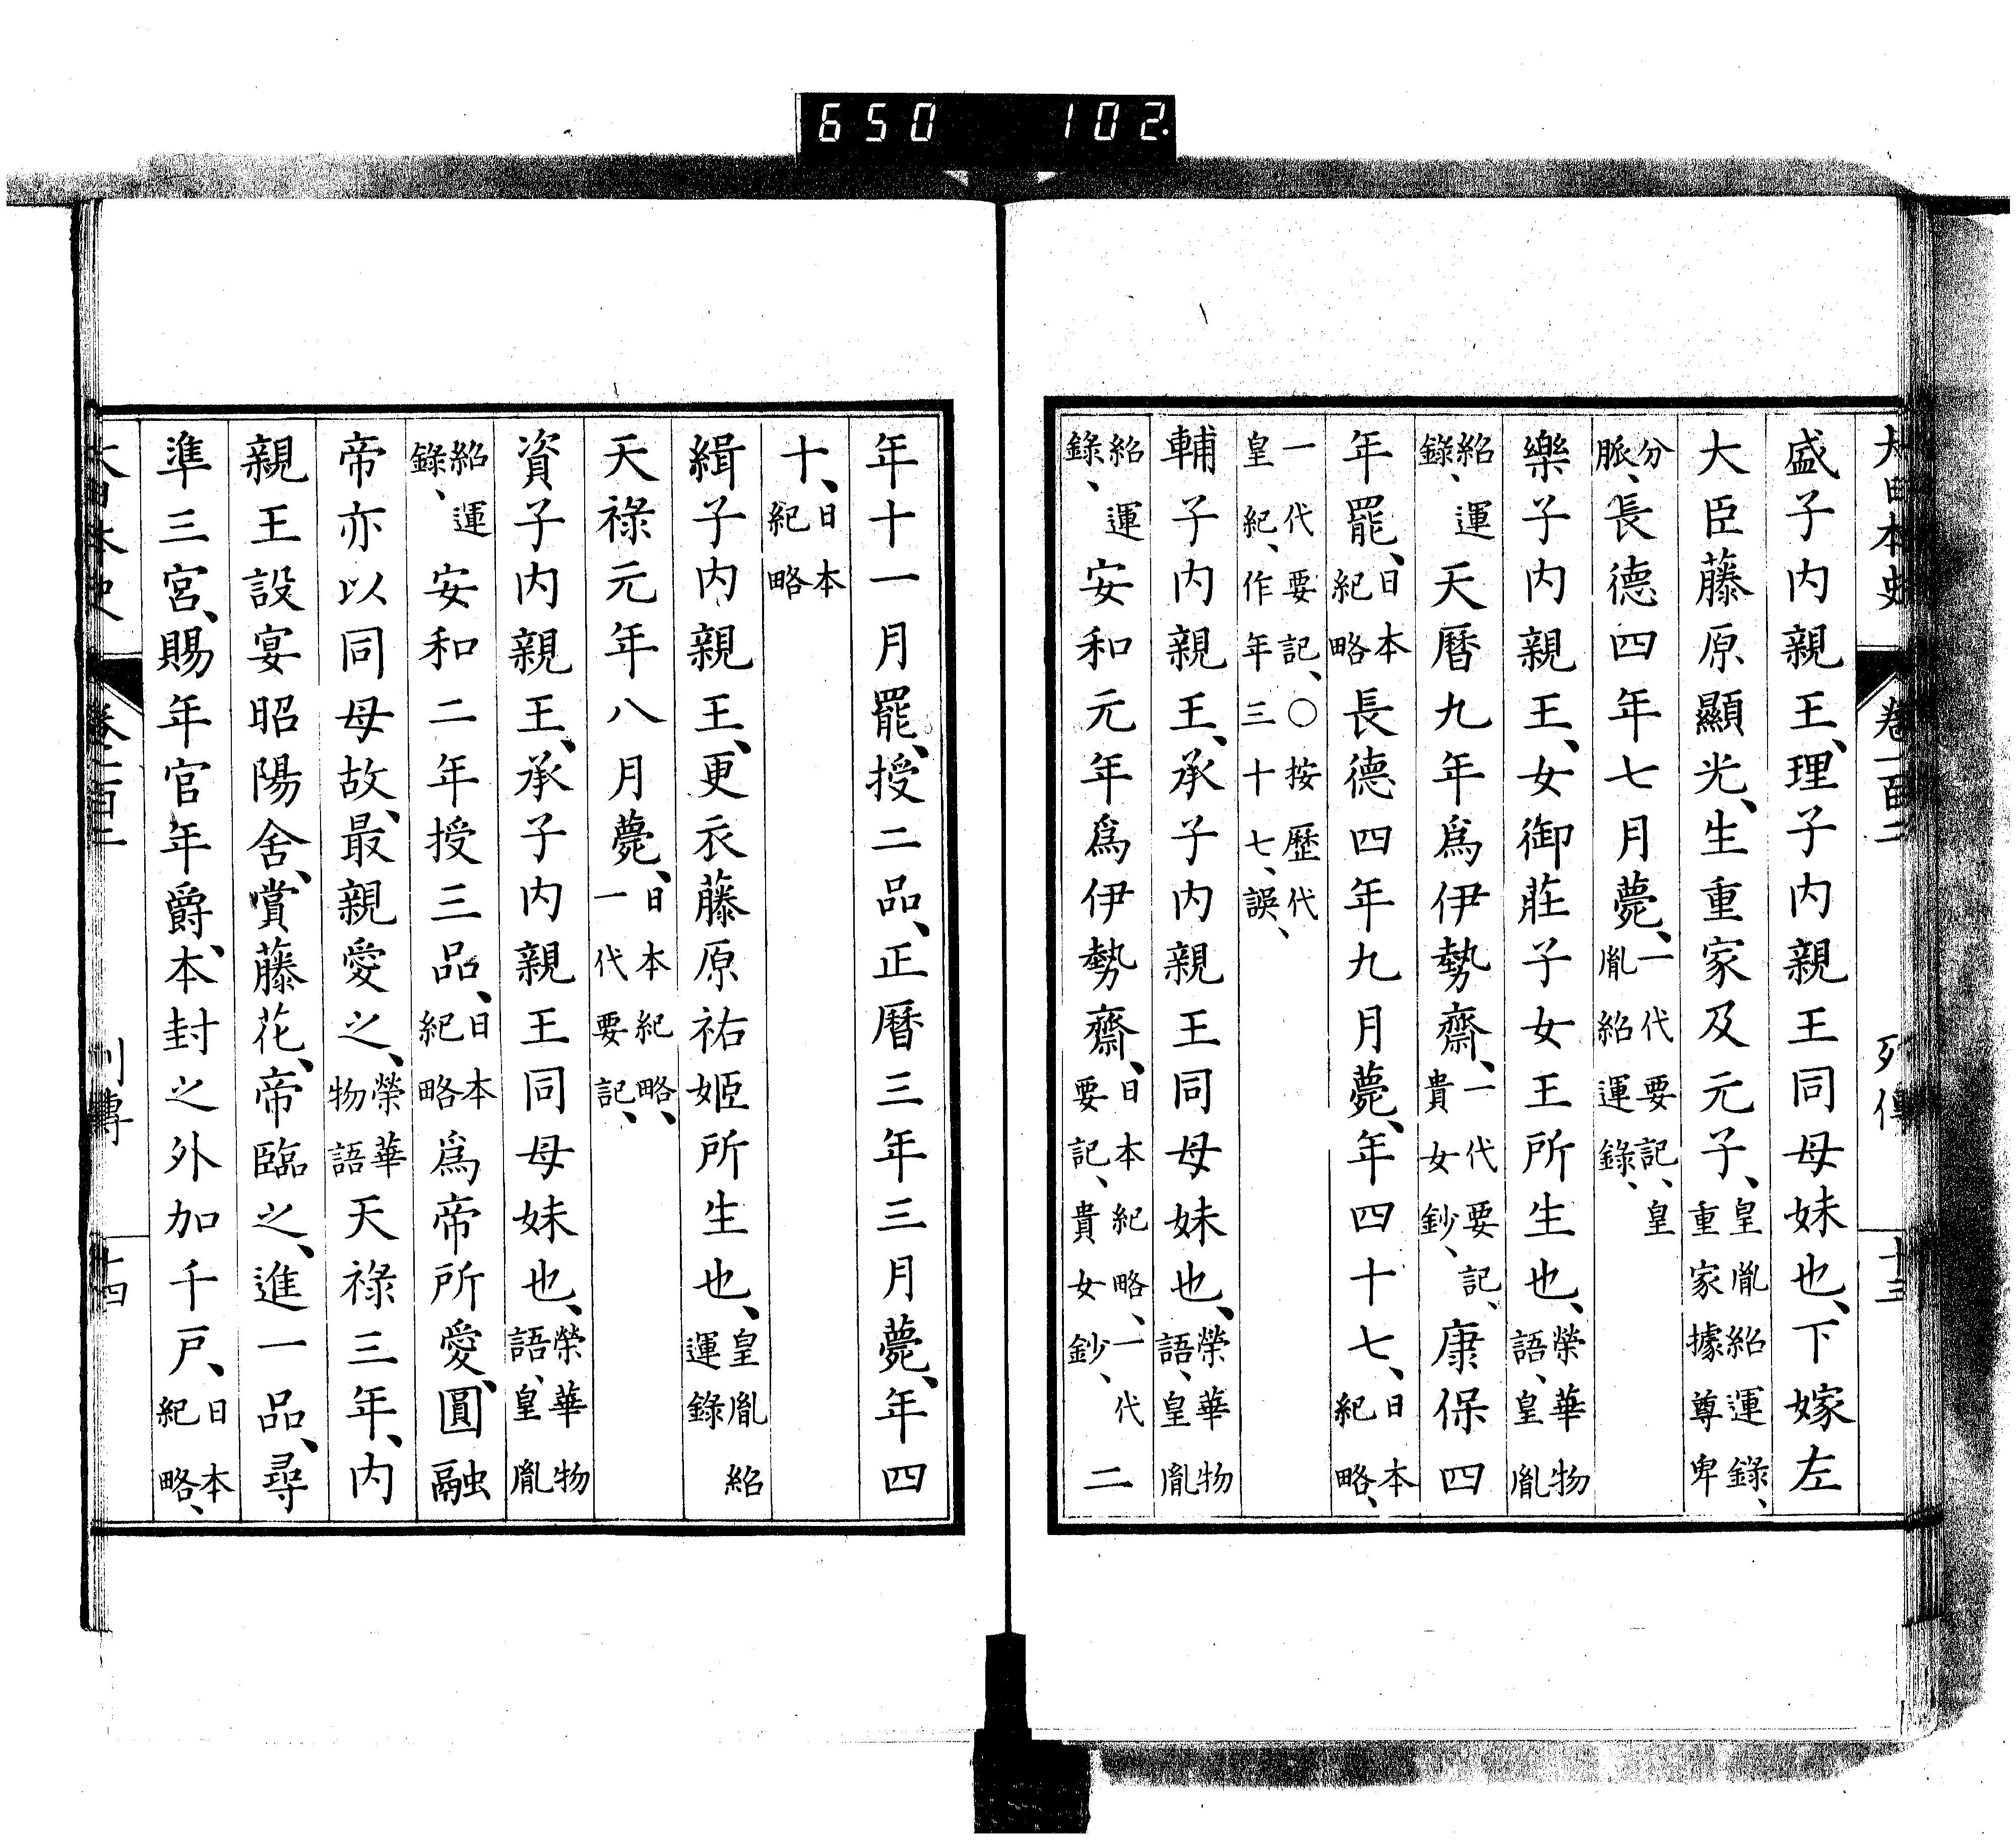 650 102
大日本史 卷一百二 列傳 十三
盛子内親王、理子内親王同母妹也、下嫁左
大臣藤原顯光、生重家及元子、皇胤紹運錄、重家據尊卑
分脈、長德四年七月薨、一代要記、皇胤紹運錄、
樂子内親王、女御莊子女王所生也、榮華物語、皇胤
紹運錄、天曆九年爲伊勢齋、一代要記、貴女鈔、康保四
年罷、日本紀略長德四年九月薨、年四十七、日本紀略、
一代要記、○按歷代皇紀、作年三十七、誤、
輔子内親王、承子内親王同母妹也、榮華物語、皇胤
紹運錄、安和元年爲伊勢齋、日本紀略、一代要記、貴女鈔、二
年十一月罷、授二品、正曆三年三月薨、年四
十、日本紀略
緝子内親王、更衣藤原祐姬所生也、皇胤紹運錄
天祿元年八月薨、日本紀略、一代要記、
資子内親王、承子内親王同母妹也、榮華物語、皇胤
紹運錄、安和二年授三品、日本紀略爲帝所愛、圓融
帝亦以同母故、最親愛之、榮華物語天祿三年、内
親王設宴昭陽舍、賞藤花、帝臨之、進一品、尋
準三宮、賜年官年爵、本封之外加千戸、日本紀略、
大日本史 卷一百二 列傳 十四